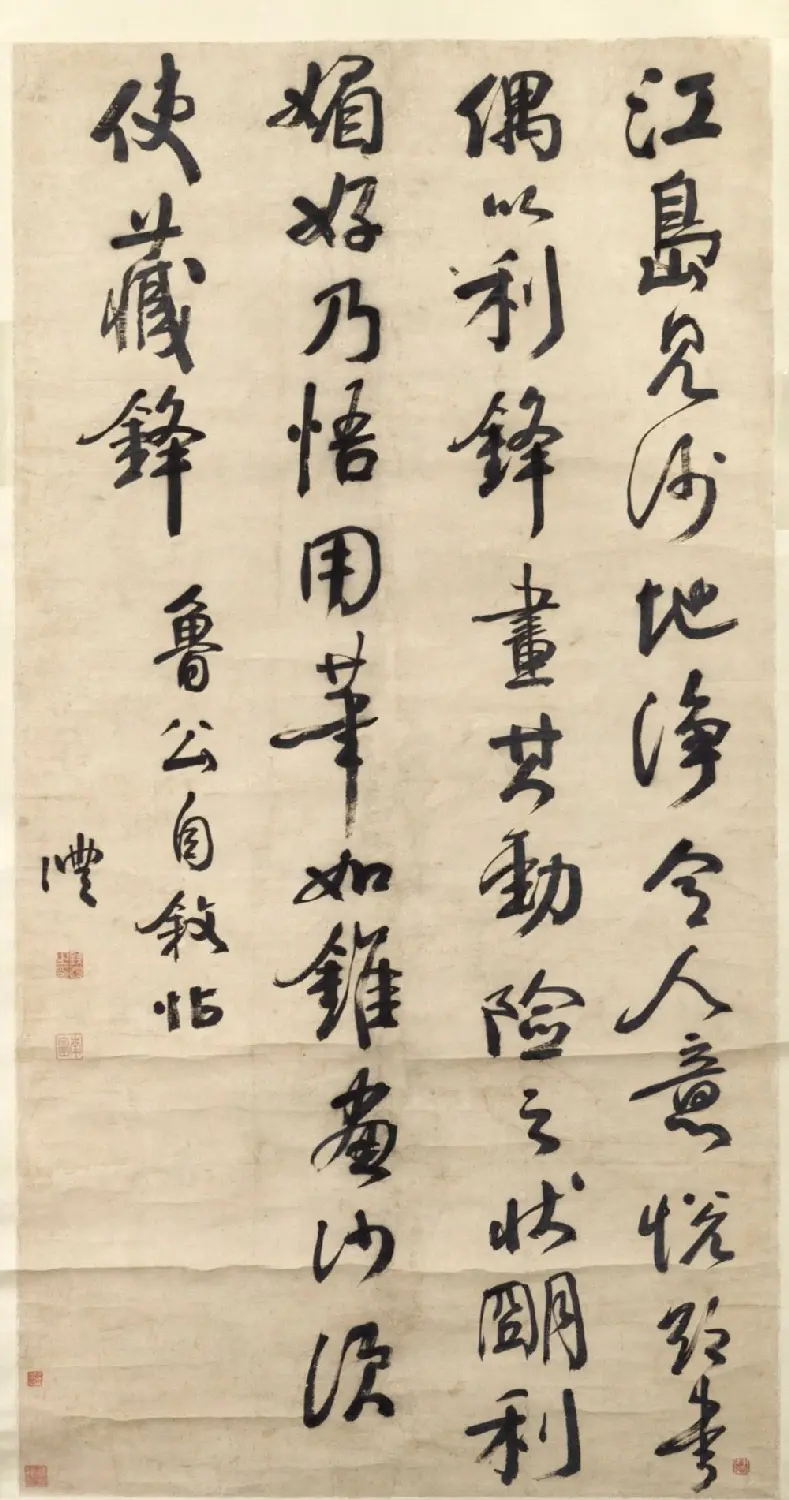 江島見沙地淨令人意悅欲書
偶以利鋒畫其勁險之狀朙利
媚好乃悟用筆如錐畫沙須
使藏鋒
魯公自敘帖
灃